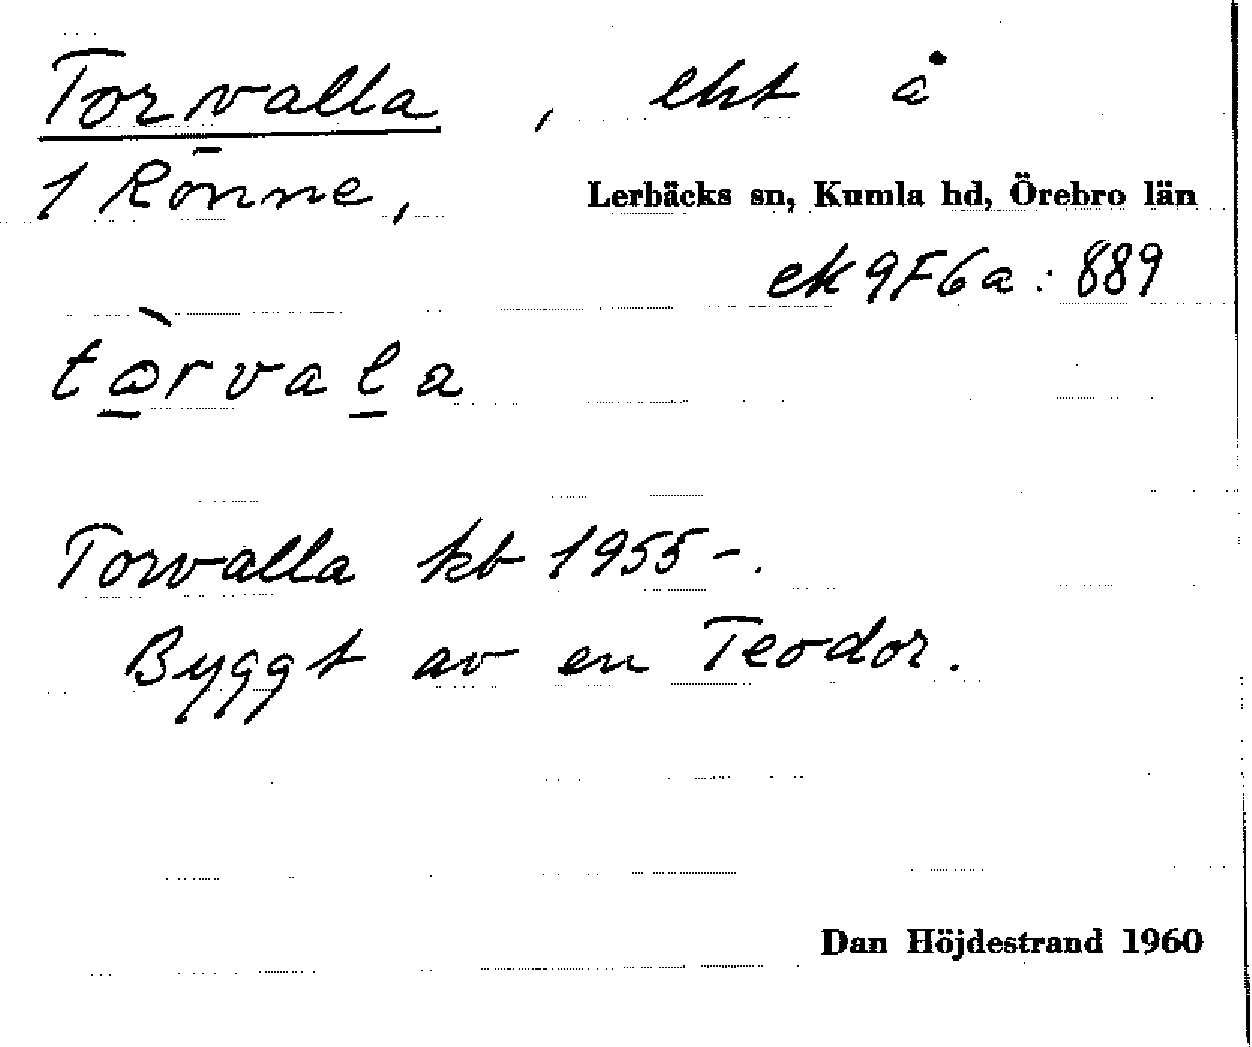 Torvalla, eht å
1 Rönne, Lerbäcks sn, Kumla hd, Örebro län
ek 9F6a: 889
tòrvala
Torvalla kb 1955-.
Byggt av en Teodor.
Dan Höjdestrand 1960